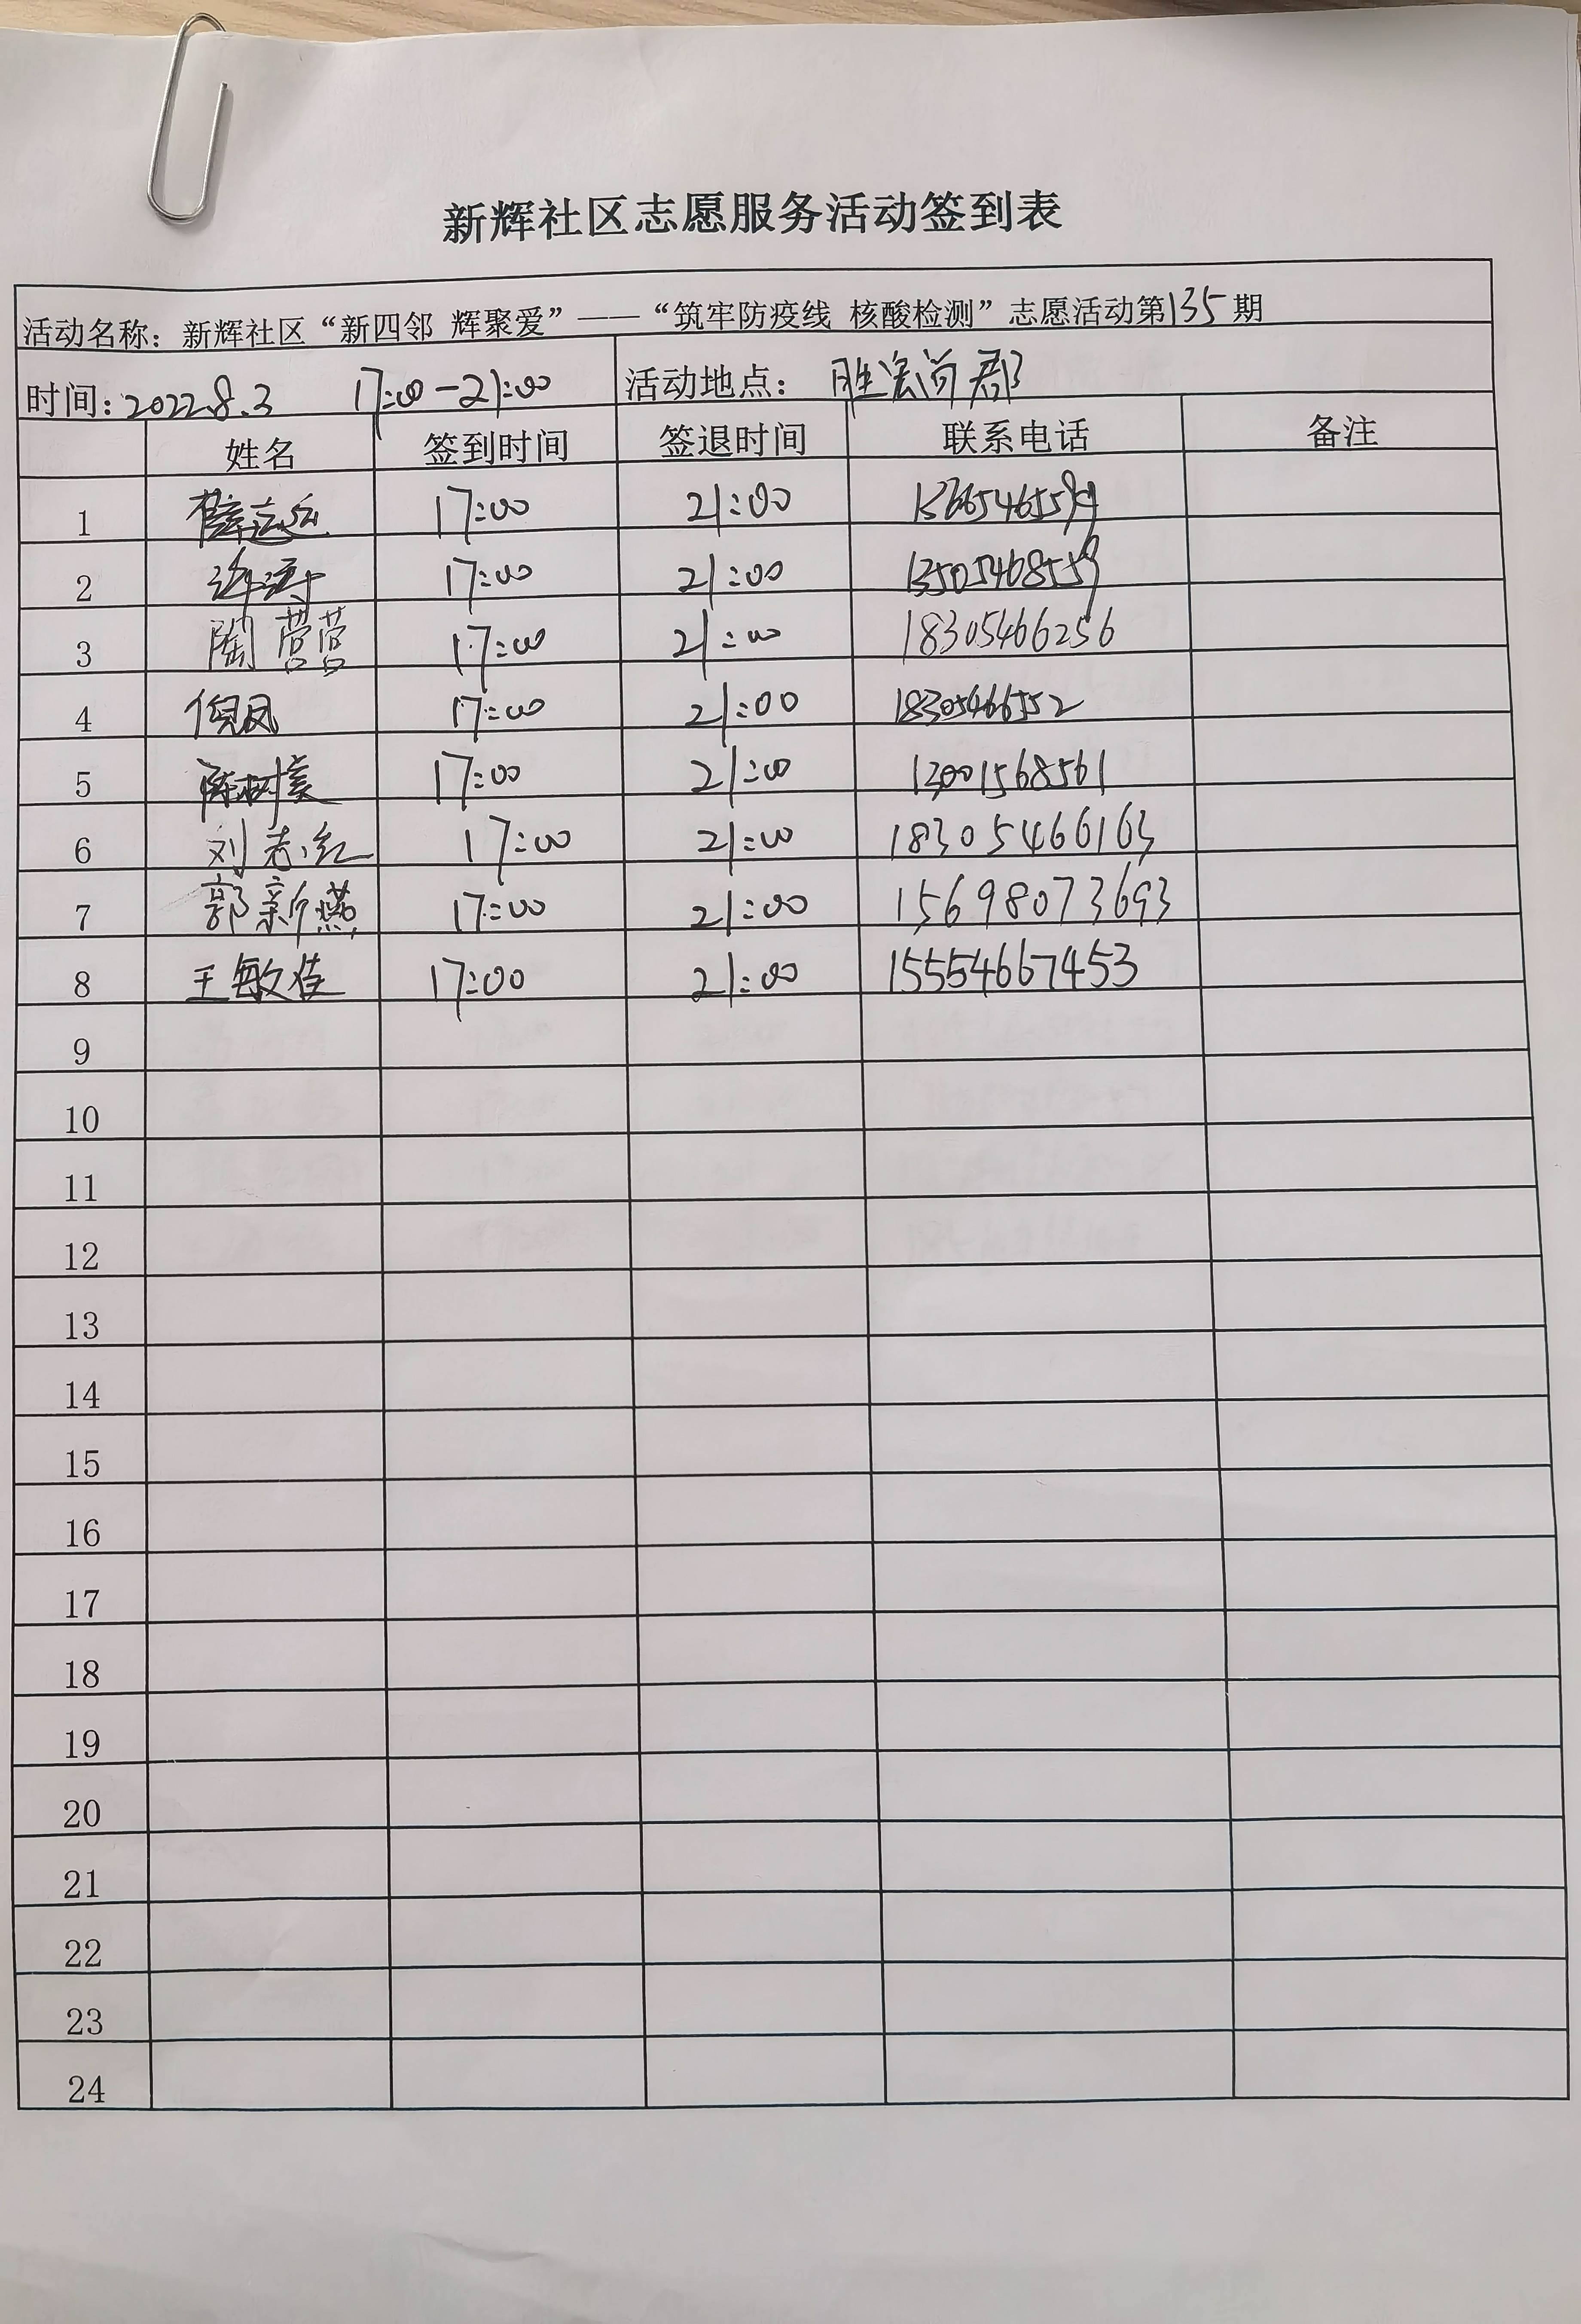 新辉社区志愿服务活动签到表
活动名称：新辉社区“新四邻 辉聚爱”——“筑牢防疫线 核酸检测”志愿活动第135期
时间：2022.8.3 17:00-21:00 活动地点：胜宏首郡
姓名 签到时间 签退时间 联系电话 备注
1 薛 17:00 21:00
2 许涛 17:00 21:00
3 陶营营 17:00 21:00 18305466256
4 倪凤 17:00 21:00 18305466552
5 陈树美 17:00 21:00
6 刘志红 17:00 21:00 18305466163
7 郭新燕 17:00 21:00 15698073693
8 王敏佳 17:00 21:00 15554667453
9
10
11
12
13
14
15
16
17
18
19
20
21
22
23
24